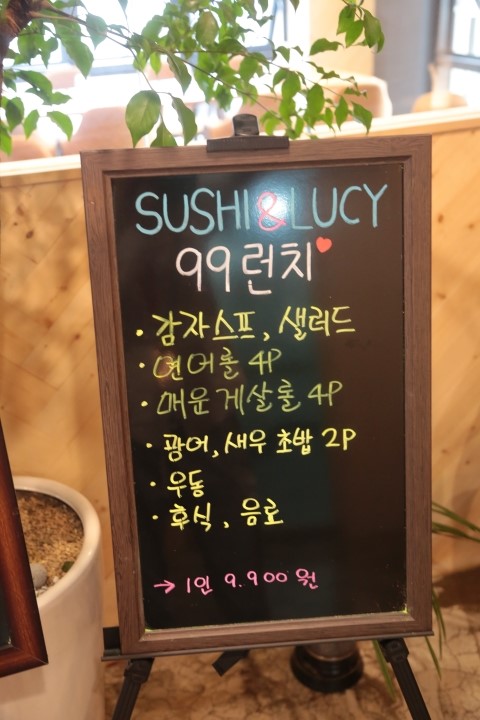 SUSHI&LUCY
99런치
· 감자스프, 샐러드
· 연어롤 4P
· 매운게살롤 4P
· 광어, 새우 초밥 2P
· 우동
· 후식, 음료
→ 1인 9.900원